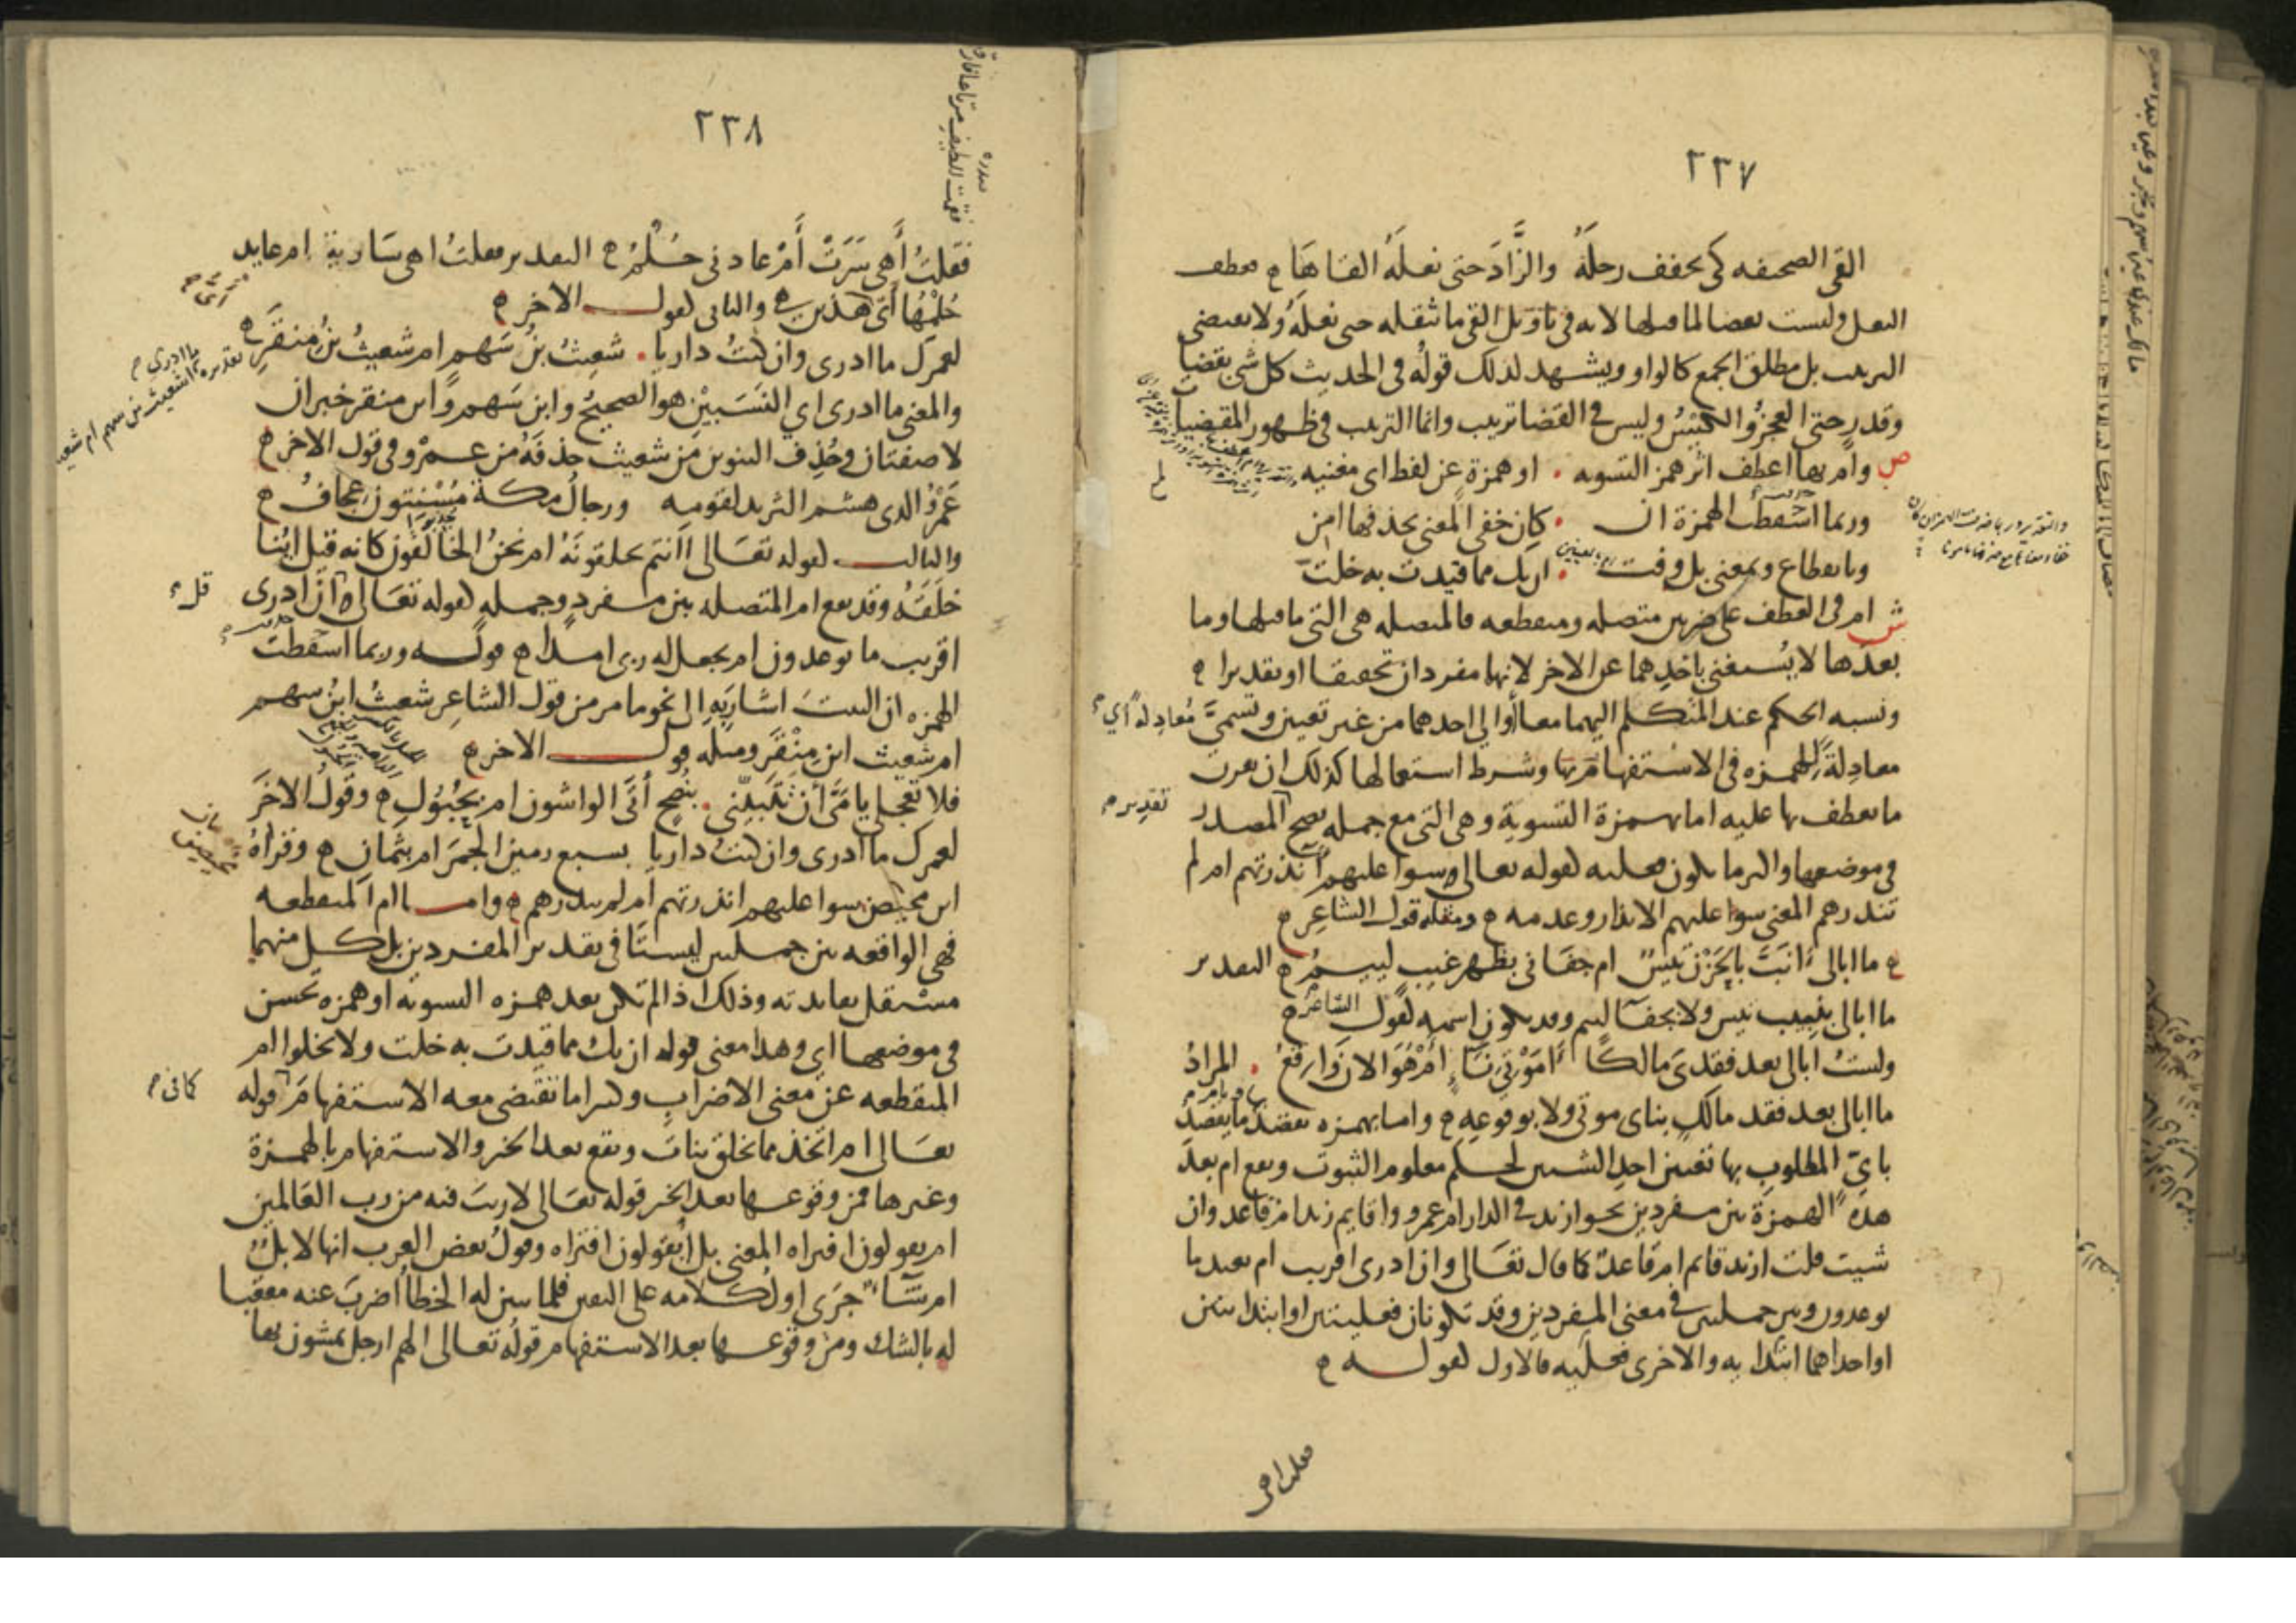 ٢٣٧
القى الصحيفه كى يخفف رحله والزاد حتى نعله القاها فعطف
النعل وليست بعضا لما قبلها لانه فى تاويل القى ما يثقله حتى نعله ولا يقتضى
الترتيب بل مطلق الجمع كالواو ويشهد لذلك قوله فى الحديث كل شى بقضا
وقدر حتى العجز والكيس وليس فى القضا ترتيب وانما الترتيب فى ظهور المقضيات
ص وام بها اعطف اثر همز التسويه . او همزة عن لفظ اى مغنيه
وربما اسقطت الهمزة ان . كان خفى المعنى بحذفها امن
وبانقطاع وبمعنى بل وفت . ان يك مما قيدت به خلت
ش ام فى العطف على ضربين متصله ومنقطعه فالمتصله هى التى ما قبلها وما
بعدها لا يستغنى باحدهما عن الاخر لانهما مفردان تحقيقا او تقديرا
ونسبه الحكم عند المتكلم اليهما معا او الى احدهما من غير تعيين وتسمى معادله اي
معادلة للهمزه فى الاستفهام بها وشرط استعمالها كذلك ان يقرن
ما يعطف بها عليه اما بهمزة التسوية وهى التى مع جمله يصح المصدر
تقدير
فى موضعها واكثر ما يكون فعليه كقوله تعالى وسوا عليهم اانذرتهم ام لم
تنذرهم المعنى سوا عليهم الانذار وعدمه ومثله قول الشاعر
ما ابالى اانب بالحزن تيس ام جفانى بظهر غيب لييم التقدير
ما ابالى بنبيب تيس ولا بجفا لييم وقد يكون اسميه كقول الشاعر
ولست ابالى بعد فقدى مالكا اموتى ناء ام هو الان واقع . المراد
ما ابالى بعد فقد مالك بناى موتى ولا بوقوعه واما بهمزه يقصد بها ما يقصد
باى المطلوب بها تعيين احد الشيين لحكم معلوم الثبوت ويقع ام بعد
هذه الهمزة بين مفردين نحو ازيد فى الدار ام عمرو واقايم زيد ام قاعد وان
شيت قلت ازيد قايم ام قاعد كما قال تعالى وان ادرى اقريب ام بعيد ما
توعدون وبين جملتين فى معنى المفردين وقد تكونان فعليتين او ابتدايتين
او احداهما ابتدايه والاخرى فعليه فالاول كقوله
فقلت اهى
٢٣٨
فقلت أهى سرت أم عادنى حلم التقدير فقلت اهى سارية ام عايد
حلمها أى هذين والثانى كقول الاخر
لعمرك ما ادرى وان كنت داريا . شعيث بن سهم ام شعيث بن منقر
والمعنى ما ادرى اي النسبين هو الصحيح وابن سهم وابن منقر خبران
لا صفتان وحذف التنوين من شعيث حذفه من عمرو فى قول الاخر
عمرو الذى هشم الثريد لقومه ورجال مكة مسنتون عجاف
والثالث كقوله تعالى اانتم تخلقونه ام نحن الخالقون كانه قيل اينا
خلقه وقد يقع ام المتصله بين مفرد وجمله كقوله تعالى ان ادرى
قل
اقريب ما توعدون ام يجعل له ربى امدا قوله وربما اسقطت
الهمزه ان البيت اشار به الى نحو ما مر من قول الشاعر شعيث ابن سهم
ام شعيث ابن منقر ومثله قول الاخر
فلا تعجلى يا مى أن تتبينى . بنصح أتى الواشون ام بحبول وقول الاخر
لعمرك ما ادرى وان كنت داريا بسبع رمين الجمر ام بثمان وقراة
ابن محيصن سوا عليهم انذرتهم ام لم تنذرهم واما ام المنقطعه
فهى الواقعه بين جملتين ليستا فى تقدير المفردين بل كل منهما
مستقل بفايدته وذلك اذا لم تكن بعد همزه التسويه او همزه تحسن
فى موضعها اي وهذا معنى قوله ان يك مما قيدت به خلت ولا يخلوا ام
المنقطعه عن معنى الاضراب وكثيرا ما تقتضى معه الاستفهام قوله
كما فى
تعالى ام اتخذ مما يخلق بنات وتقع بعد الخبر والاستفهام بالهمزة
وغيرها فمن وقوعها بعد الخبر قوله تعالى لا ريب فيه من رب العالمين
ام يقولون افتراه المعنى بل ايقولون افتراه وقول بعض العرب انها لابل
ام شا جرى اول كلامه على اليقين فلما تبين له الخطا أضرب عنه معقبا
له بالشك ومن وقوعها بعد الاستفهام قوله تعالى الهم ارجل يمشون بها